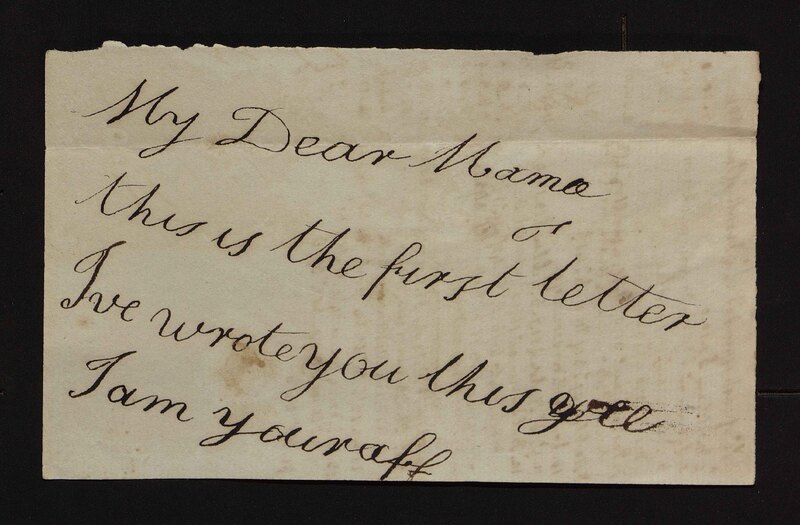 My Dear Mama
this is the first letter
I've wrote you this
I am your aff